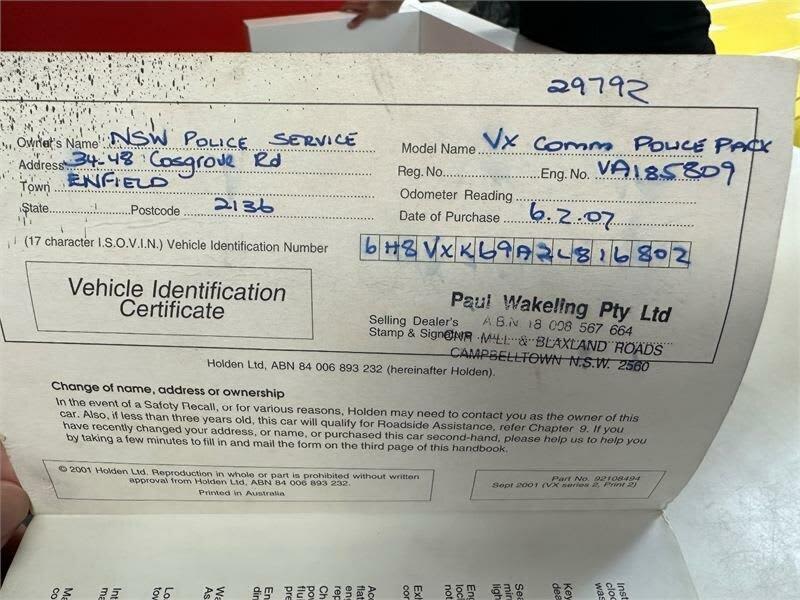 29792
Owner's Name NSW POLICE SERVICE
Address 34-48 Cosgrove Rd
Town ENFIELD
State Postcode 2136
Model Name VX Comm POLICE PACK
Reg. No. Eng. No. VA185809
Odometer Reading
Date of Purchase 6.2.07
(17 character I.S.O.V.I.N.) Vehicle Identification Number 6H8VXK69A2L816802
Vehicle Identification
Certificate
Selling Dealer's
Stamp & Signature
Paul Wakeling Pty Ltd
A.B.N 18 008 567 664
CNR MILL & BLAXLAND ROADS
CAMPBELLTOWN N.S.W. 2560
Holden Ltd, ABN 84 006 893 232 (hereinafter Holden).
Change of name, address or ownership
In the event of a Safety Recall, or for various reasons, Holden may need to contact you as the owner of this
car. Also, if less than three years old, this car will qualify for Roadside Assistance, refer Chapter 9. If you
have recently changed your address, or name, or purchased this car second-hand, please help us to help you
by taking a few minutes to fill in and mail the form on the third page of this handbook.
© 2001 Holden Ltd. Reproduction in whole or part is prohibited without written
approval from Holden Ltd, ABN 84 006 893 232.
Printed in Australia
Part No. 92108494
Sept 2001 (VX series 2, Print 2)